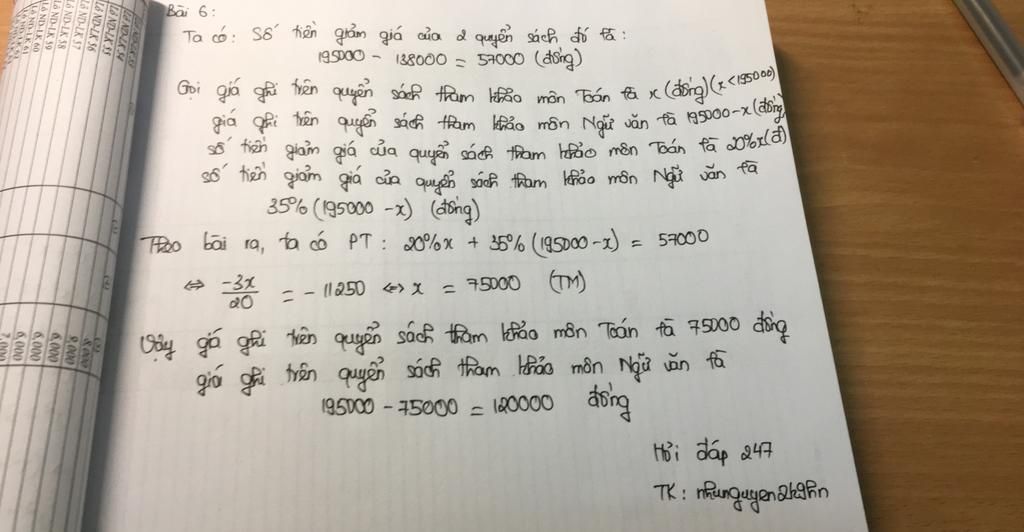 Bài 6:
Ta có: Số tiền giảm giá của 2 quyển sách đó là:
195000 - 138000 = 57000 (đồng)
Gọi giá ghi trên quyển sách tham khảo môn Toán là x (đồng) (x < 195000)
giá ghi trên quyển sách tham khảo môn Ngữ văn là 195000-x (đồng)
số tiền giảm giá của quyển sách tham khảo môn Toán là 20%x (đ)
số tiền giảm giá của quyển sách tham khảo môn Ngữ văn là
35% (195000 - x) (đồng)
Theo bài ra, ta có PT: 20%x + 35% (195000 - x) = 57000
⇔ -3x/20 = - 11250 ⇔ x = 75000 (TM)
Vậy giá ghi trên quyển sách tham khảo môn Toán là 75000 đồng
giá ghi trên quyển sách tham khảo môn Ngữ văn là
195000 - 75000 = 120000 đồng
Hỏi đáp 247
TK: nhunguyen2k9hn
Lô ND-LK 55
Lô ND-LK 56
Lô ND-LK 57
Lô ND-LK 58
Lô ND-LK 59
Lô ND-LK 60
Lô ND-LK 61
8.000
9.000
6.000
6.000
6.000
7.000